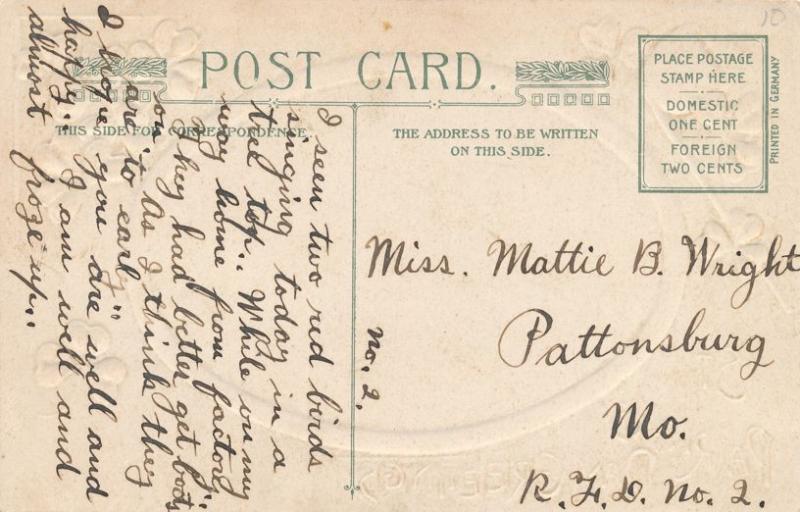 10
POST CARD.
THIS SIDE FOR CORRESPONDENCE
THE ADDRESS TO BE WRITTEN
ON THIS SIDE.
PLACE POSTAGE
STAMP HERE
DOMESTIC
ONE CENT
FOREIGN
TWO CENTS
PRINTED IN GERMANY
I seen two red birds
singing today in a
tree top.. While on my
way home from factory
They had better get boots
on. As I think they
are to early
I hope you are well and
happy.. I am well and
almost froze up..
No. 2.
Miss. Mattie B. Wright
Pattonsburg
Mo.
R. F. D. No. 2.